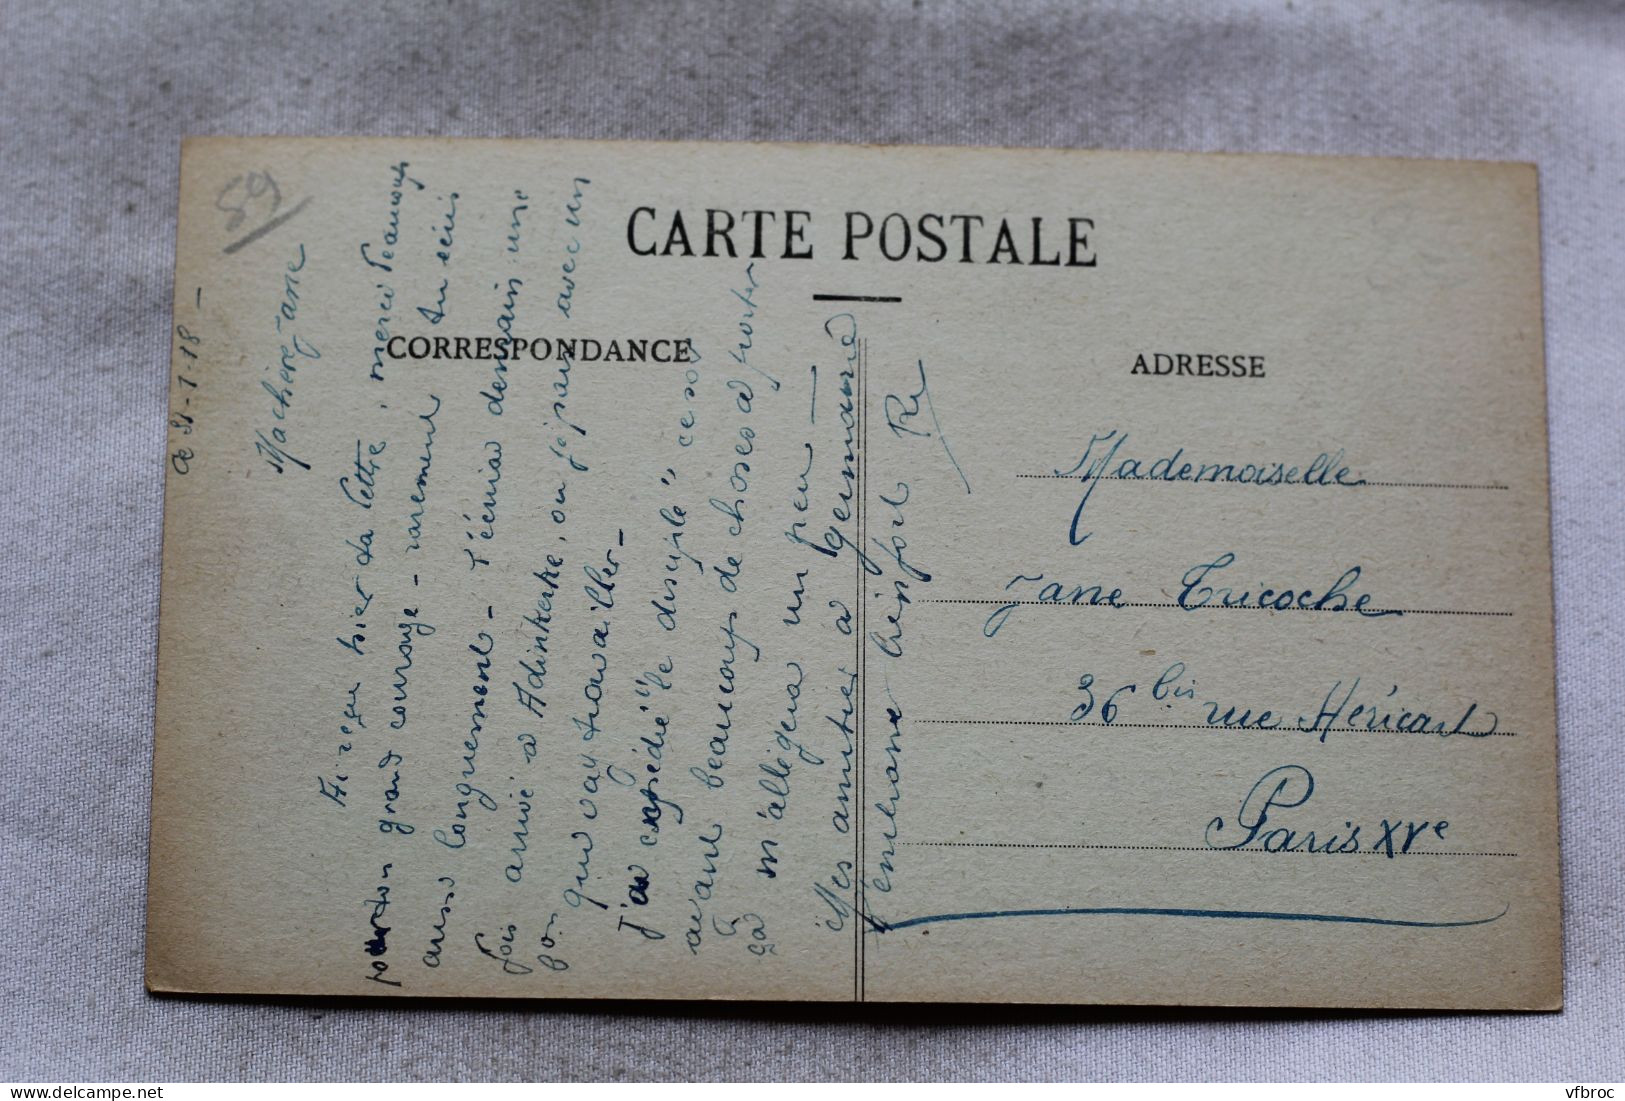 59
CARTE POSTALE
CORRESPONDANCE
ADRESSE
Ce 31-1-18 -
Ma chère Jane
Ai reçu hier ta lettre, merci beaucoup
pour ton grand courage - rarement tu écris
aussi longuement - t'écrirai demain une
fois arrivé à Adinkerke, où je pars avec un
bo
J'ai expédié "le disciple" ce soir
avant beaucoup de choses à porter
ça m'allégera un peu —
Mes amitiés à Germaine
t'embrasse bien fort Re
Mademoiselle
Jane Tricoche
36 bis rue Héricart
Paris XVe
vfbroc